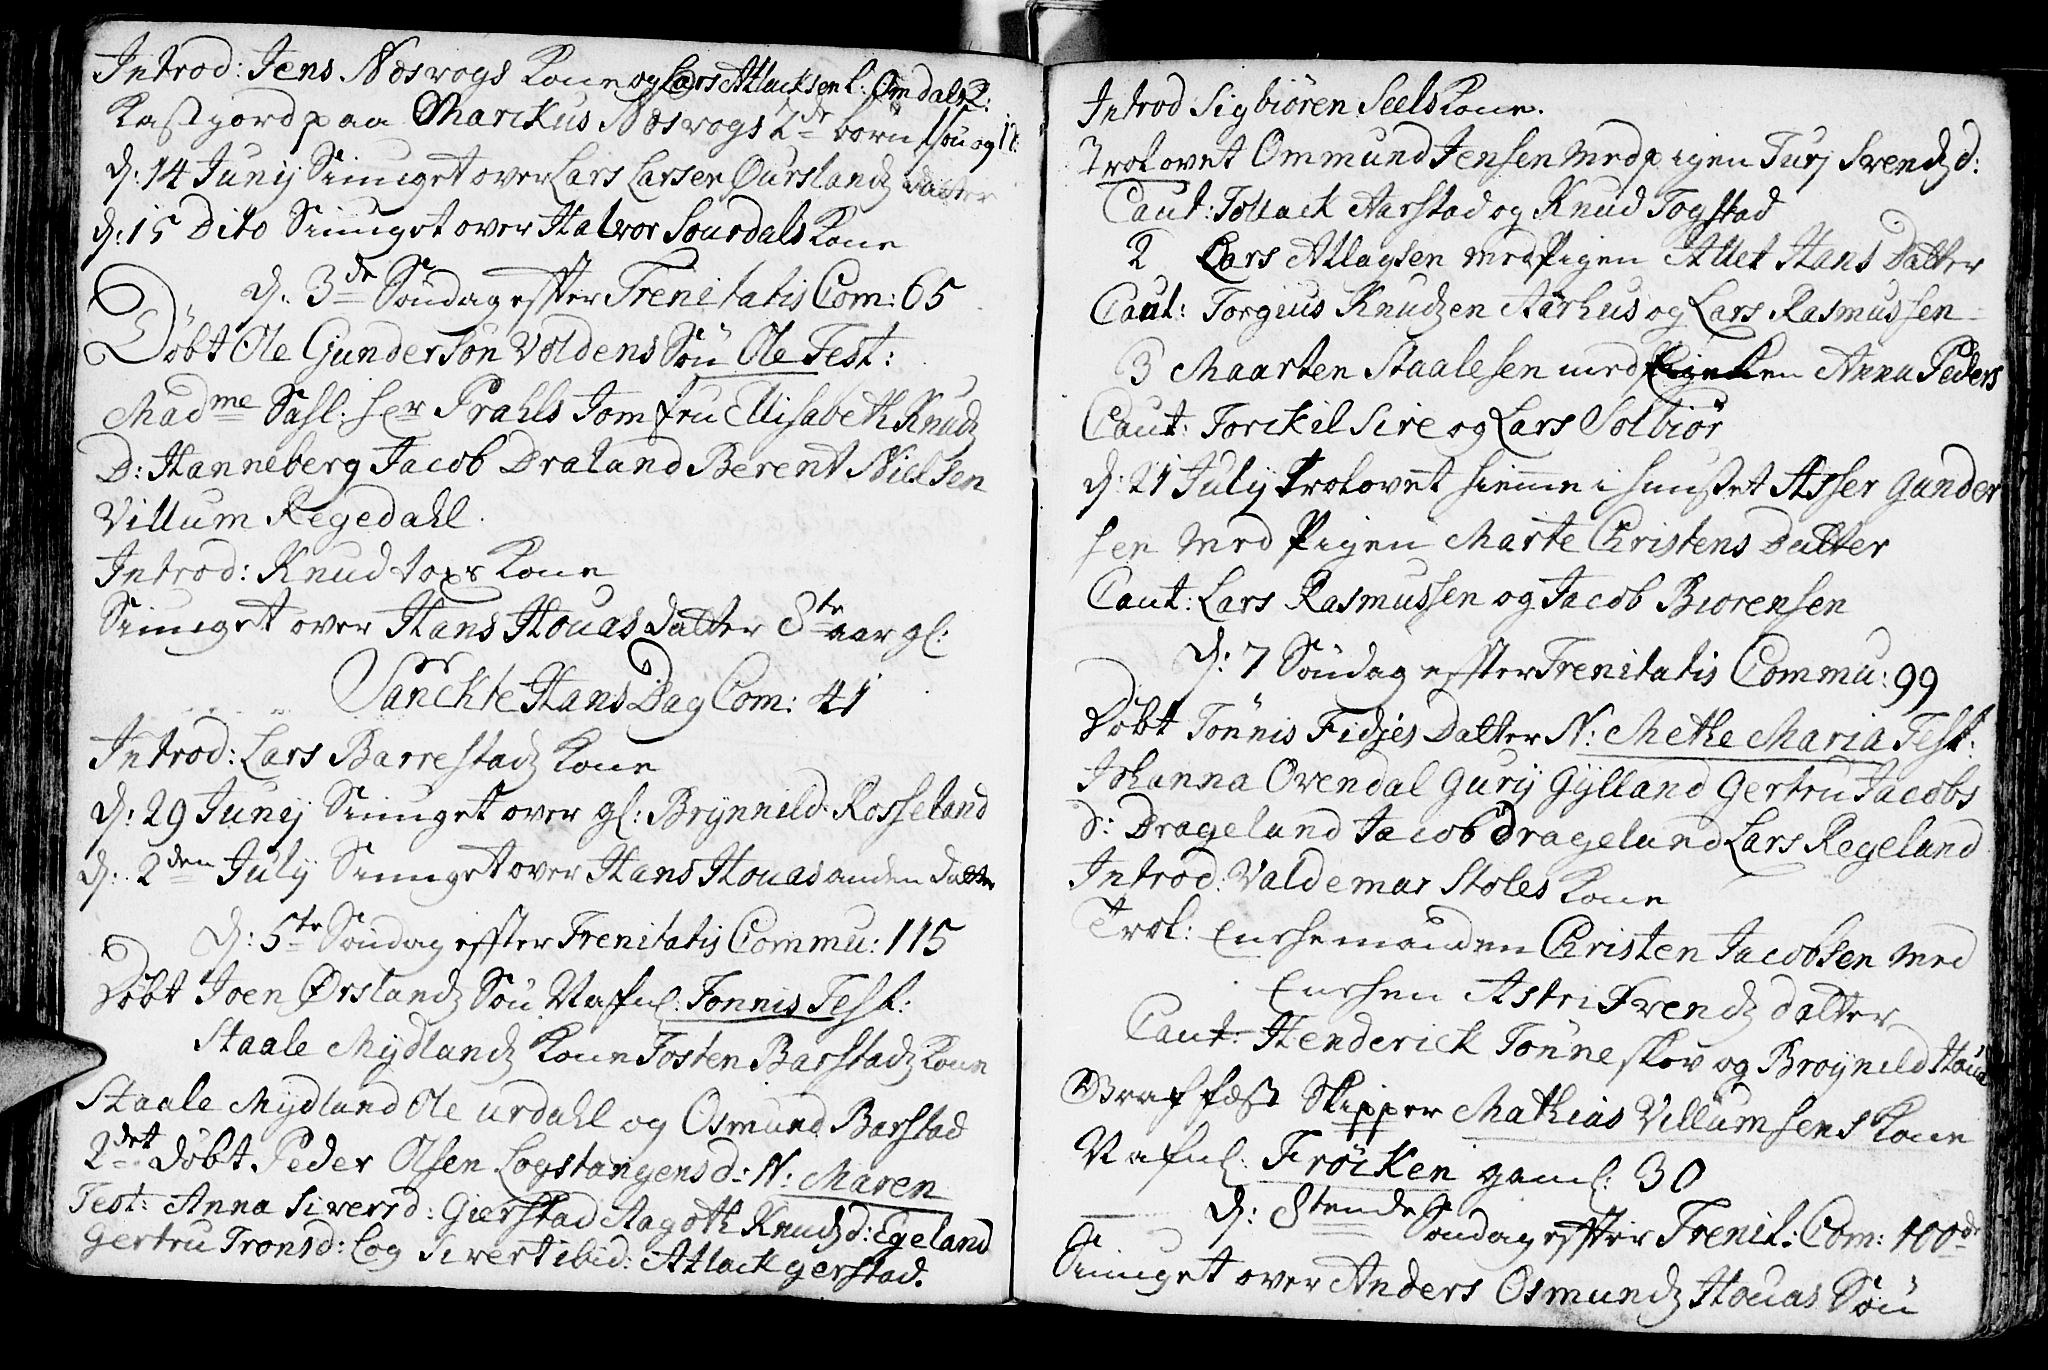 Introd: Jens Nosvogs Kone og Lars Atlacksen l: Omdals K:
Kast jord paa Marckus Nosvogs 2de børn 1 søn og 1 d:
d: 14 Junij Siunget over Lars Larsen Ourslandz datter
d: 15 Dito Siunget over Halvor Sourdals Kone
d: 3de Søndag effter Trenitatis Com: 65
Døbt Ole Gunderson Voldens Søn Ole Test:
Madme Sahl: her Prahls Jomfru Ellisabeth Knudz
D: Hanneberg Jacob Draland Berent Nielsen
Villum Regedahl.
Introd: Knud Kone
Siunget over Hans Houas datter 8te aar gl:
Sanckte Hans Dag Com: 41
Introd: Lars Barrestadz Kone
d: 29 Junij Siunget over gl: Brynnild Rosseland
d: 2den July Siunget over Hans Houas anden datter
d: 5te Søndag effter Trenitatis Commu: 115
Døbt Joen Ørslandz Søn Nafnl: Tonnis Test:
Staale Mydlandz Kone Tosten Barstadz Kone
Staale Mydland Ole urdahl og Osmund Barstad
2det døbt Peder Olsen Logstangens d: N: Maren
Test: Anna Siversd: Gierstad Aagoth Knudzd: Egeland
Gertru Tronsd: Log Sivert ibid: Atlack gerstad.
Introd Sigbiøren Seels Kone.
Trolovet Ommund Jensen med pigen Turj Svendzd:
Caut: Tollack Aarstad og Knud Togstad
2 Lars Atlagsen med Pigen Allet Hans Datter
Caut: Torgius Knudzen Aarhus og Lars Rasmussen
3 Maarten Staalesen med Anna Peders
Caut: Torckil Sire og Lars Solbiør
d: 21 July Trolovet hiemme i huuset Asser Gunder
sen med Pigen Marte Christens Datter
Caut: Lars Rasmussen og Jacob Biorensen
d: 7 Søndag effter Trenitatis Commu: 99
Døbt Tønnis Fidjes Datter N: Methe Maria Test:
Johanna Ovendal Gurij Gylland Gertru Jacobs
d: Drageland Jacob Drageland Lars Regeland
Introd: Valdemar Stoles Kone
Trol: Enchemanden Christen Jacobsen med
Enchen Astri Svendz datter
Caut: Henderick Tønneskov og Brøyneld Houa
Graffæst Skipper Mathias Villumsens Kone
Nafnl: Frøicken gaml: 30
d: 8tende Søndag effter Trenit: Com: 100de
Siunget over Anders Osmundz Houas Søn